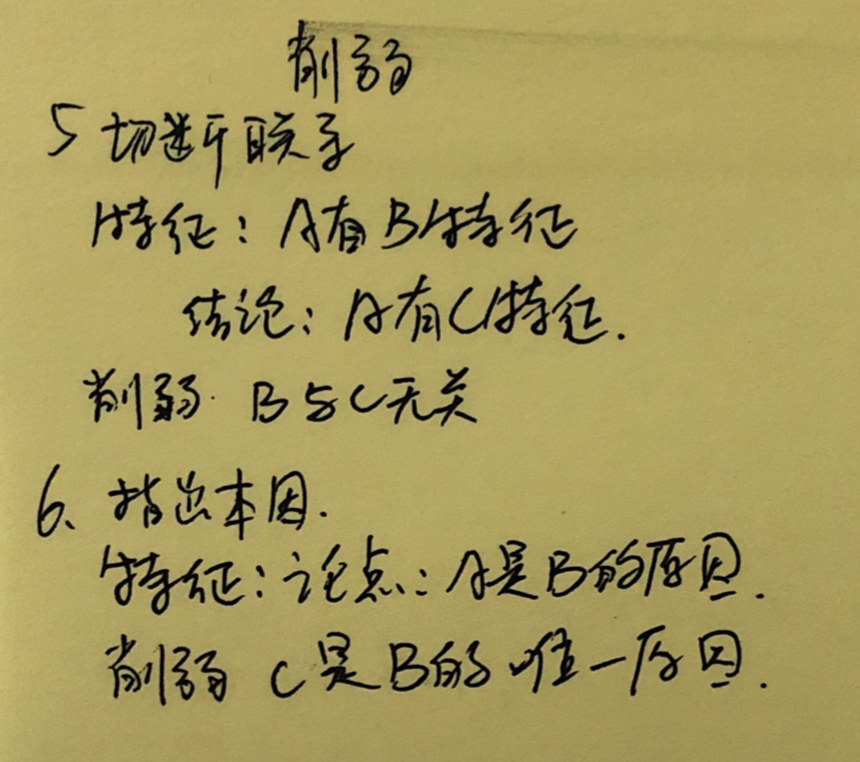 削弱
5 切断联系
特征：A有B特征
结论：A有C特征.
削弱. B与C无关
6、指出本因.
特征：论点：A是B的原因.
削弱 C是B的唯一原因.